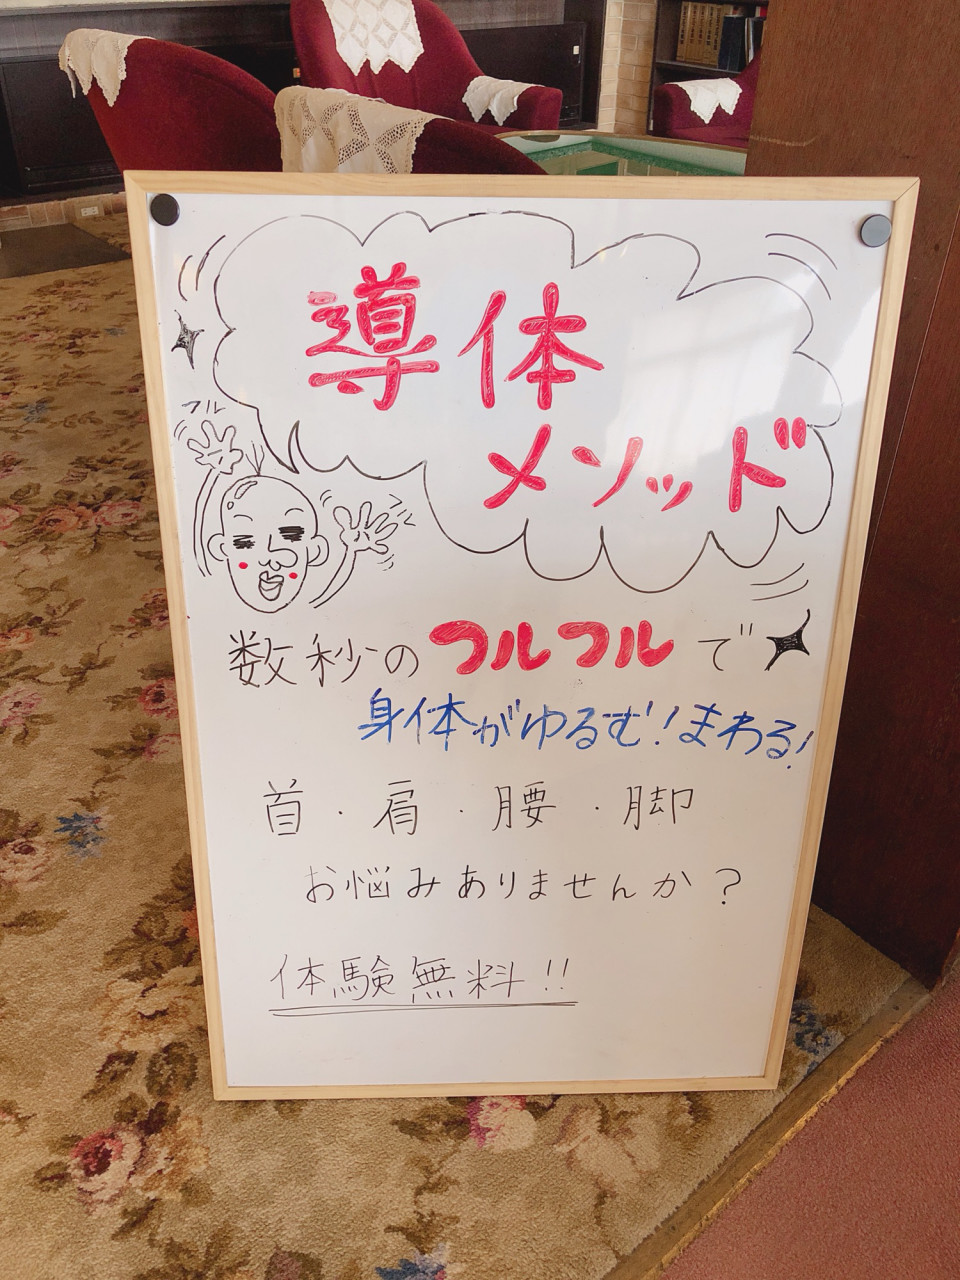 導体
メソッド
フル
数秒のフルフルで
身体がゆるむ!まわる!
首・肩・腰・脚
お悩みありませんか?
体験無料!!